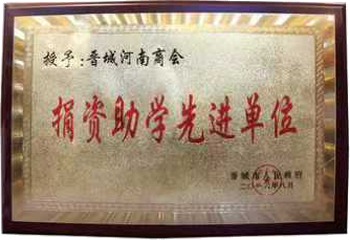 授予:晋城河南商会
捐资助学先进单位
晋城市人民政府
二〇〇六年八月